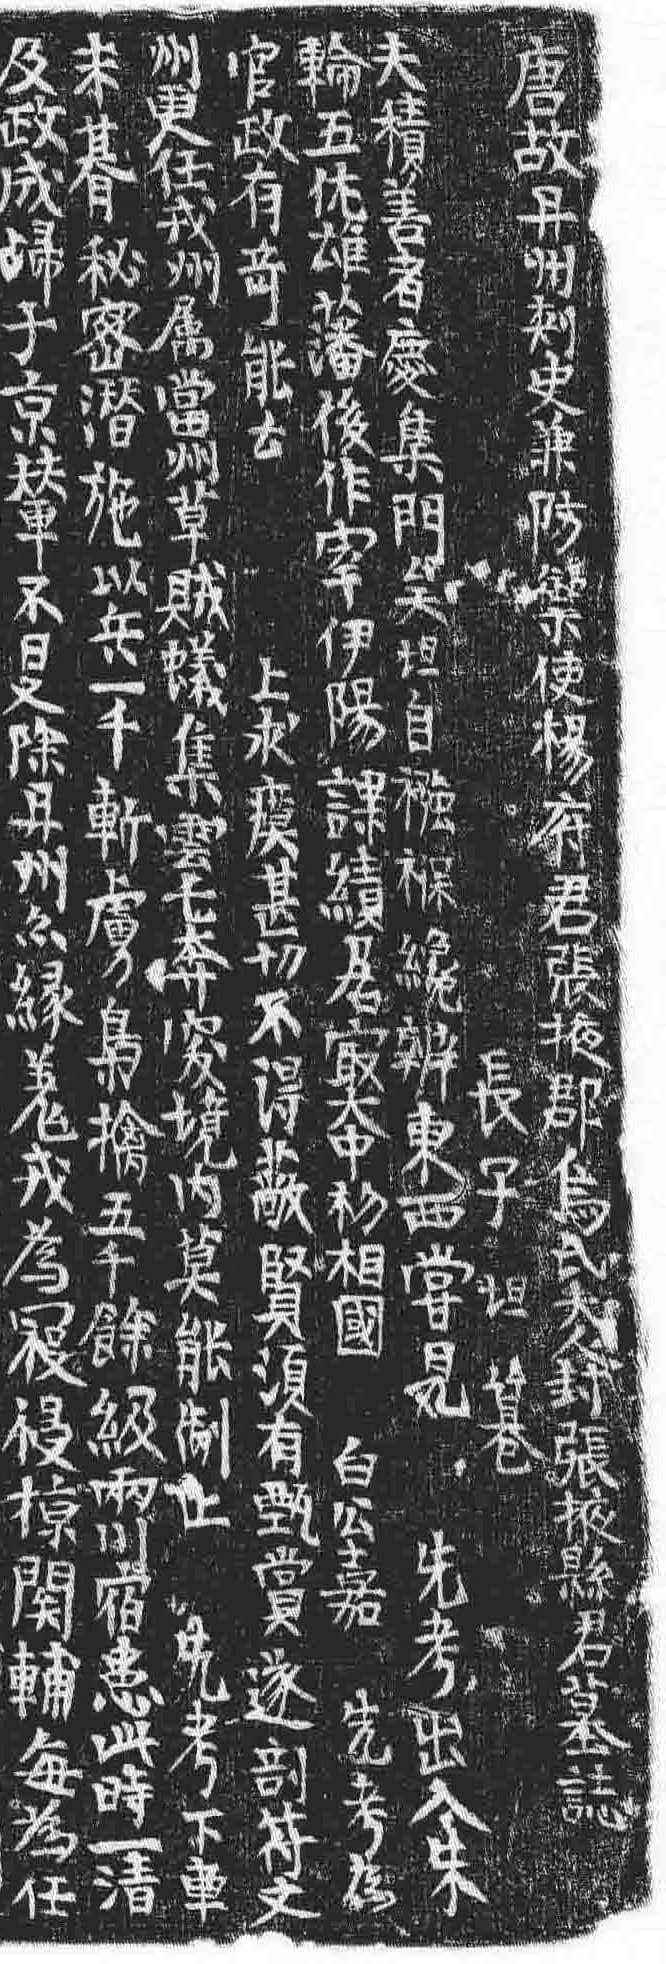 唐故丹州刺史兼防禦使楊府君張掖郡烏氏夫人封張掖縣君墓誌
長子坦篡
夫積善者慶集門矣坦自襁褓纔辨東西嘗見先考出入朱
輪五佐雄藩後作宰伊陽課績居最大中初相國白公嘉先考為
官政有奇能去上求瘼甚切不得蔽賢須有甄賞遂剖符文
州更任戎州属當州草賊蟻集雲屯奔突境内莫能制止先考下車
未朞月秘密潜施以兵一千斬虜梟擒五千餘級兩川宿患此時一清
及政成歸于京輦不旦夕除丹州亦緣羌戎為寇侵掠関輔每為任